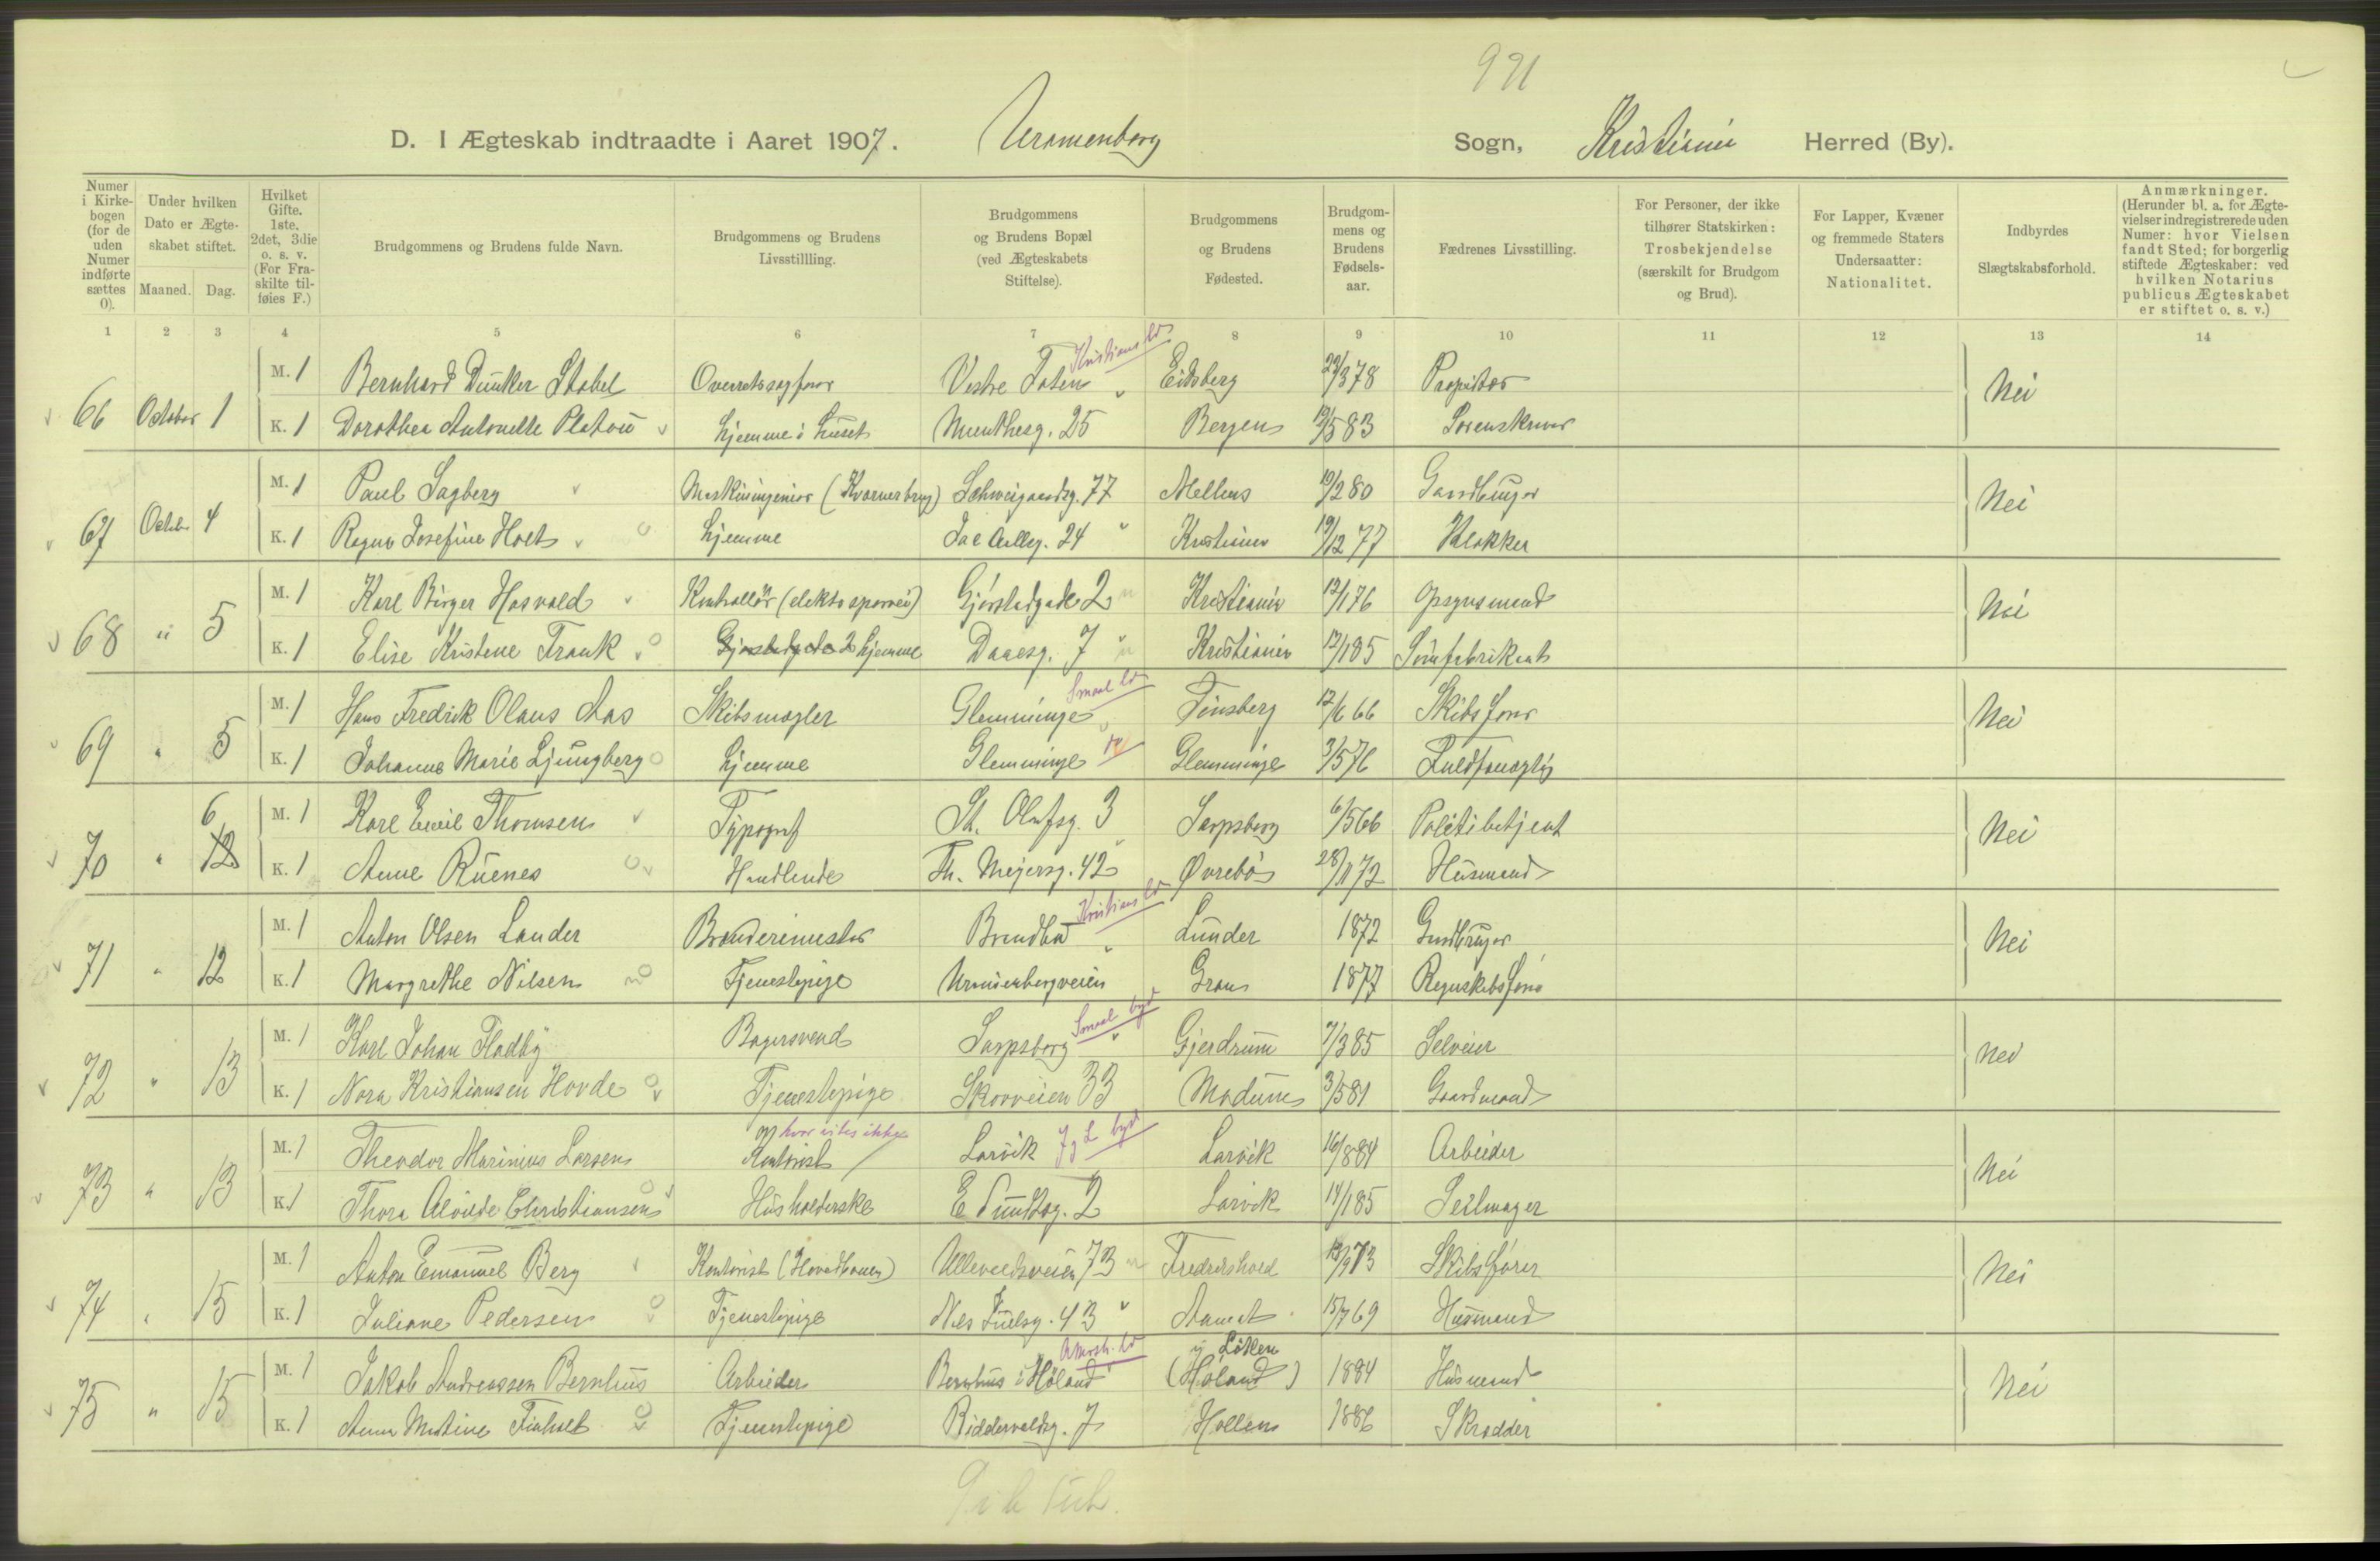 921
D. I Ægteskab indtraadte i Aaret 1907. Uranienborg Sogn, Kristiania Herred (By).
Numer i Kirke-bogen (for de uden Numer indførte sættes 0).
Under hvilken Dato er Ægte-skabet stiftet.
Maaned. Dag.
Hvilket Gifte. 1ste, 2det, 3die o. s. v. (For Fra-skilte til-føies F.)
Brudgommens og Brudens fulde Navn.
Brudgommens og Brudens Livsstillling.
Brudgommens og Brudens Bopæl (ved Ægteskabets Stiftelse).
Brudgommens og Brudens Fødested.
Brudgom-mens og Brudens Fødsels-aar.
Fædrenes Livsstilling.
For Personer, der ikke tilhører Statskirken: Trosbekjendelse (særskilt for Brudgom og Brud).
For Lapper, Kvæner og fremmede Staters Undersaatter: Nationalitet.
Indbyrdes Slægtskabsforhold.
Anmærkninger. (Herunder bl. a. for Ægte-vielser indregistrerede uden Numer: hvor Vielsen fandt Sted; for borgerlig stiftede Ægteskaber: ved hvilken Notarius publicus Ægteskabet er stiftet o. s. v.)
1 2 3 4 5 6 7 8 9 10 11 12 13 14
Kristians
M. 1 Bernhard Dunker Stabel Overretssagfører Vestre Toten Eidsberg 29/3 78 Proprietær
66 October 1 Nei
K. 1 Dorothea Antonette Platou hjemme i huset Munthesg. 25 Bergen 19/5 83 Sorenskriver
M. 1 Paul Sagberg Maskiningeniør (Kværnerbrug) Schweigaardsg. 77 Melhus 19/2 80 Gaardbruger
67 Octob. 4 Nei
K. 1 Ragna Josefine Holt hjemme Jac Aallsg. 24 Kristiania 19/12 77 Klokker
M. 1 Karl Birger Hasvold Kontrollør (elektr sporvei) Gjørstadgade 2 Kristiania 12/1 76 Opsynsmand
68 " 5 Nei
K. 1 Elise Kristene Frank hjemme Daaesg. 7 Kristiania 12/1 85 Sømfabrikant
Smaal
M. 1 Hans Fredrik Olaus Aas Skibsmægler Glemminge Tønsberg 12/6 66 Skibsfører
69 " 5 Nei
K. 1 Johanne Marie Ljungberg hjemme Glemminge Glemminge 3/5 76 Fuldmægtig
6
M. 1 Karl Emil Thomsen Typograf St. Olafsg. 3 Sarpsborg 6/5 66 Politibetjent
70 " 12 Nei
K. 1 Anne Ruenes Handlende Th. Meyersg. 42 Øvrebø 28/11 72 Husmand
Kristians
M. 1 Anton Olsen Lander Brænderimester Brandbu Lunder 1872 Gaardbruger
71 " 12 Nei
K. 1 Margrethe Nilsen Tjenestepige Uranienborgveien Gran 1877 Regnskabsfører
Smaal byd
M. 1 Karl Johan Fladby Bagersvend Sarpsborg Gjerdrum 7/3 85 Selveier
72 " 13 Nei
K. 1 Nora Kristiansen Hovde Tjenestepige Skovveien 33 Modum 3/5 81 Gaardmand
hvor vites ikke J. L. byd
M. 1 Theodor Marinius Larsen Kontorist Larvik Larvik 16/8 84 Arbeider
73 " 13 Nei
K. 1 Thora Alvilde Christiansen Husholderske E Sundtsg. 2 Larvik 14/1 85 Seilmager
M. 1 Anton Emanuel Berg Kontorist (Hovedbanen) Ullevoldsveien 73 Fredrikshald 13/9 73 Skibsfører
74 " 15 Nei
K. 1 Juliane Pedersen Tjenestepige Niels Juelsg. 43 Aamot 15/7 69 Husmand
Akersh. Løken
M. 1 Jakob Andreassen Bernhus Arbeider Bernhus i Høland (Høland) 1884 Husmand
75 " 15 Nei
K. 1 Anna Martine Finholt Tjenestepige Riddervoldsg. 7 Holleia 1886 Skrædder